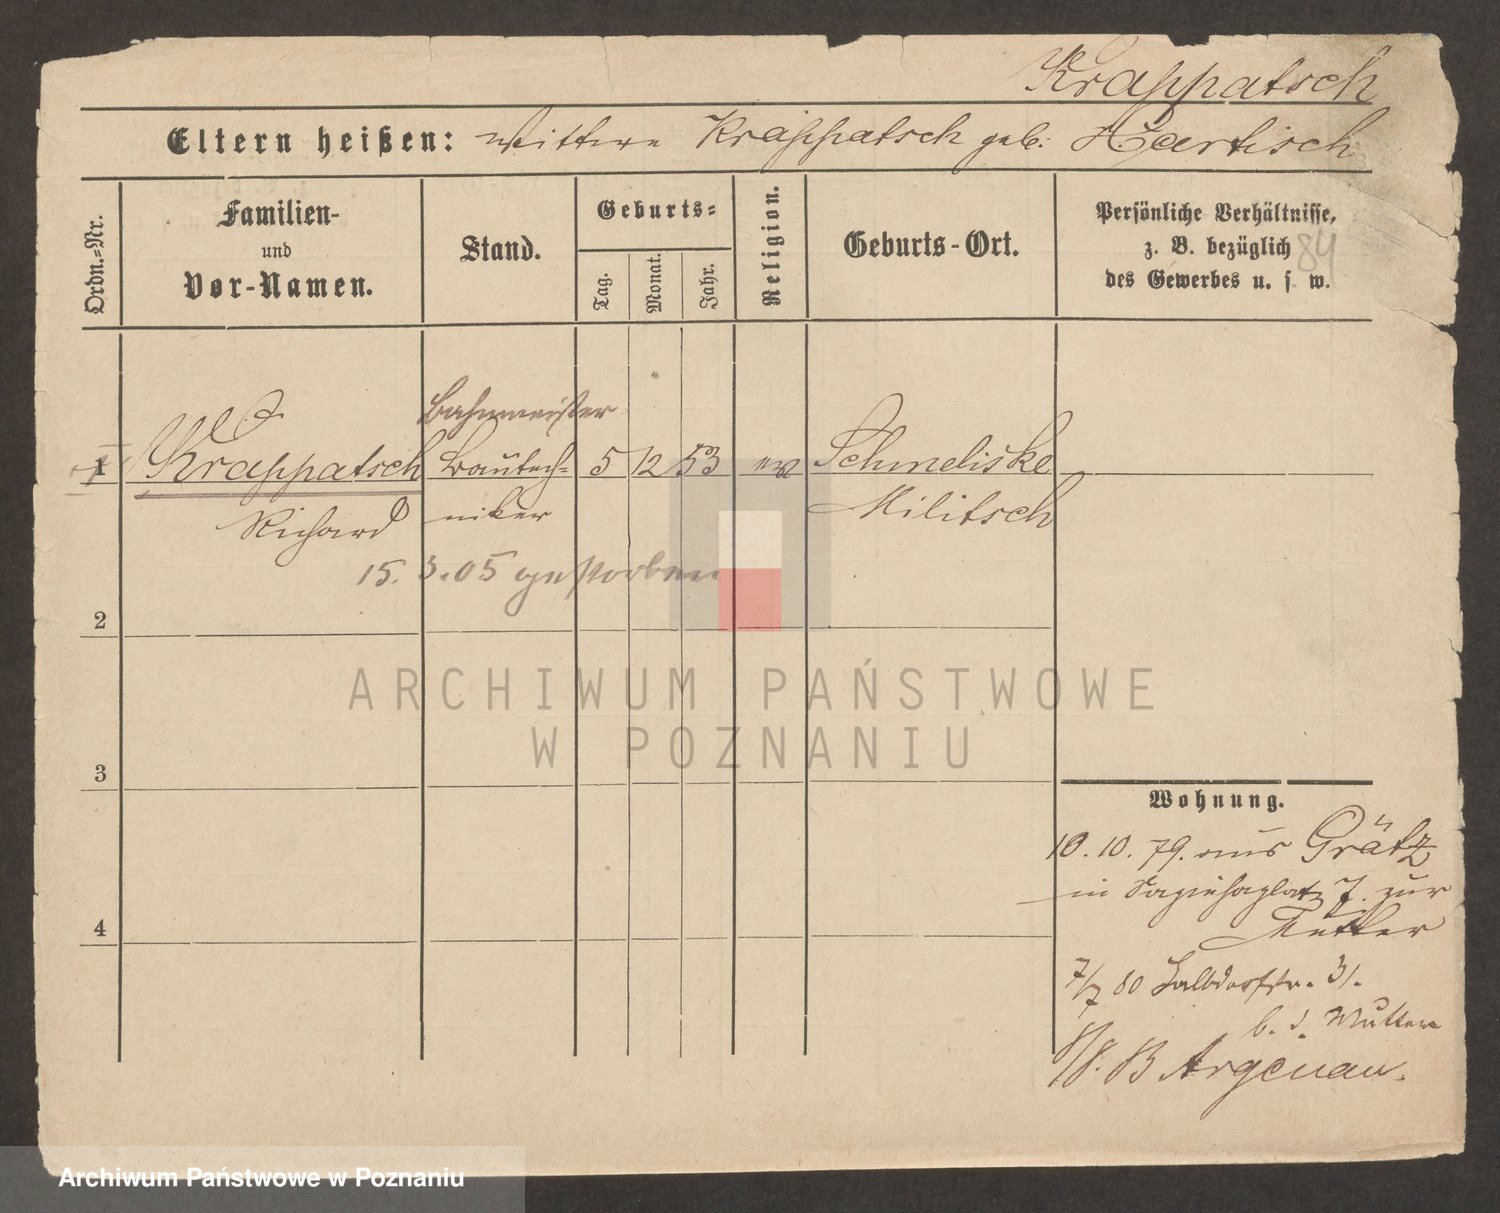 Krappatsch
Eltern heißen: Wittwe Krappatsch geb: Hartisch
Ordn.-Nr.
Familien-
und
Vor-Namen.
Stand.
Geburts=
Tag.
Monat.
Jahr.
Religion.
Geburts-Ort.
Persönliche Verhältnisse,
z. B. bezüglich
des Gewerbes u. s w.
84
Bahnmeister
1 Krappatsch Bautech= 5 12 53 ev Schmeliske
Richard niker Militsch
15. 3.05 gestorben
2
3
4
Wohnung.
10.10.79. aus Grätz
in Sapiehaplatz 7. zur
Mutter
7/7 80 Halbdorfstr. 31.
b. d. Mutter
Argenau.
ARCHIWUM PAŃSTWOWE
W POZNANIU
Archiwum Państwowe w Poznaniu